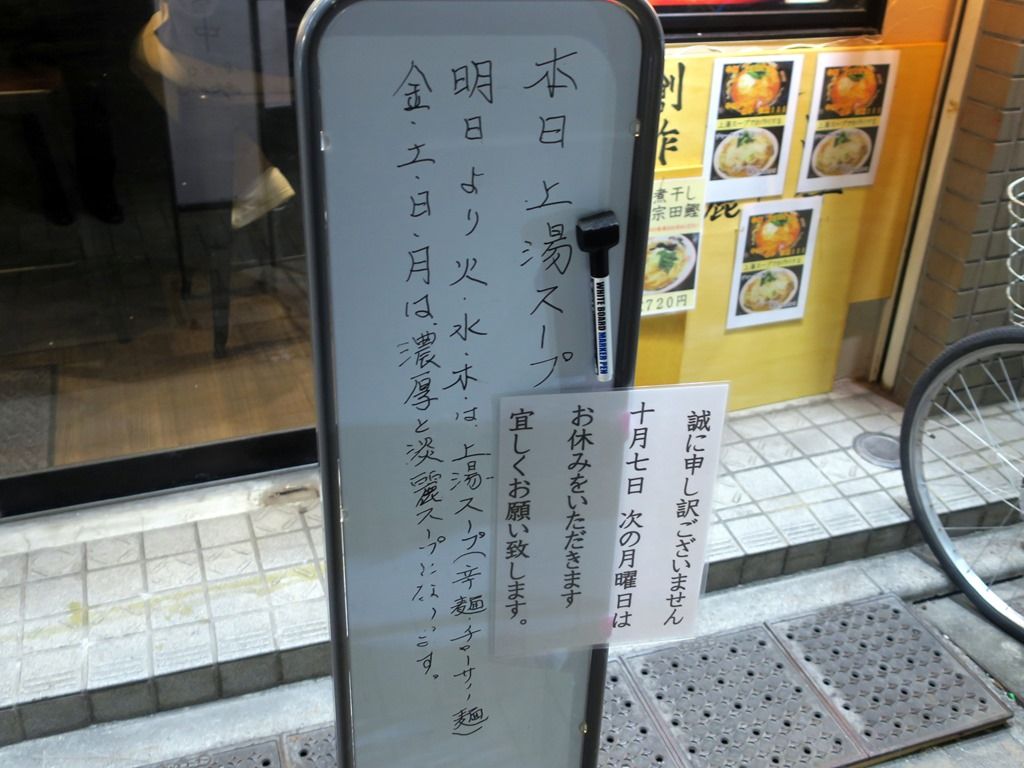 本日上湯スープ
明日より火・水・木・は、上湯スープ(辛麺・チャーサー麺)
金・土・日・月は、濃厚と淡麗スープになります。
誠に申し訳ございません
十月七日 次の月曜日は
お休みをいただきます
宜しくお願い致します。
WHITE BOARD MARKER PEN
創作
煮干し
宗田鰹
720円